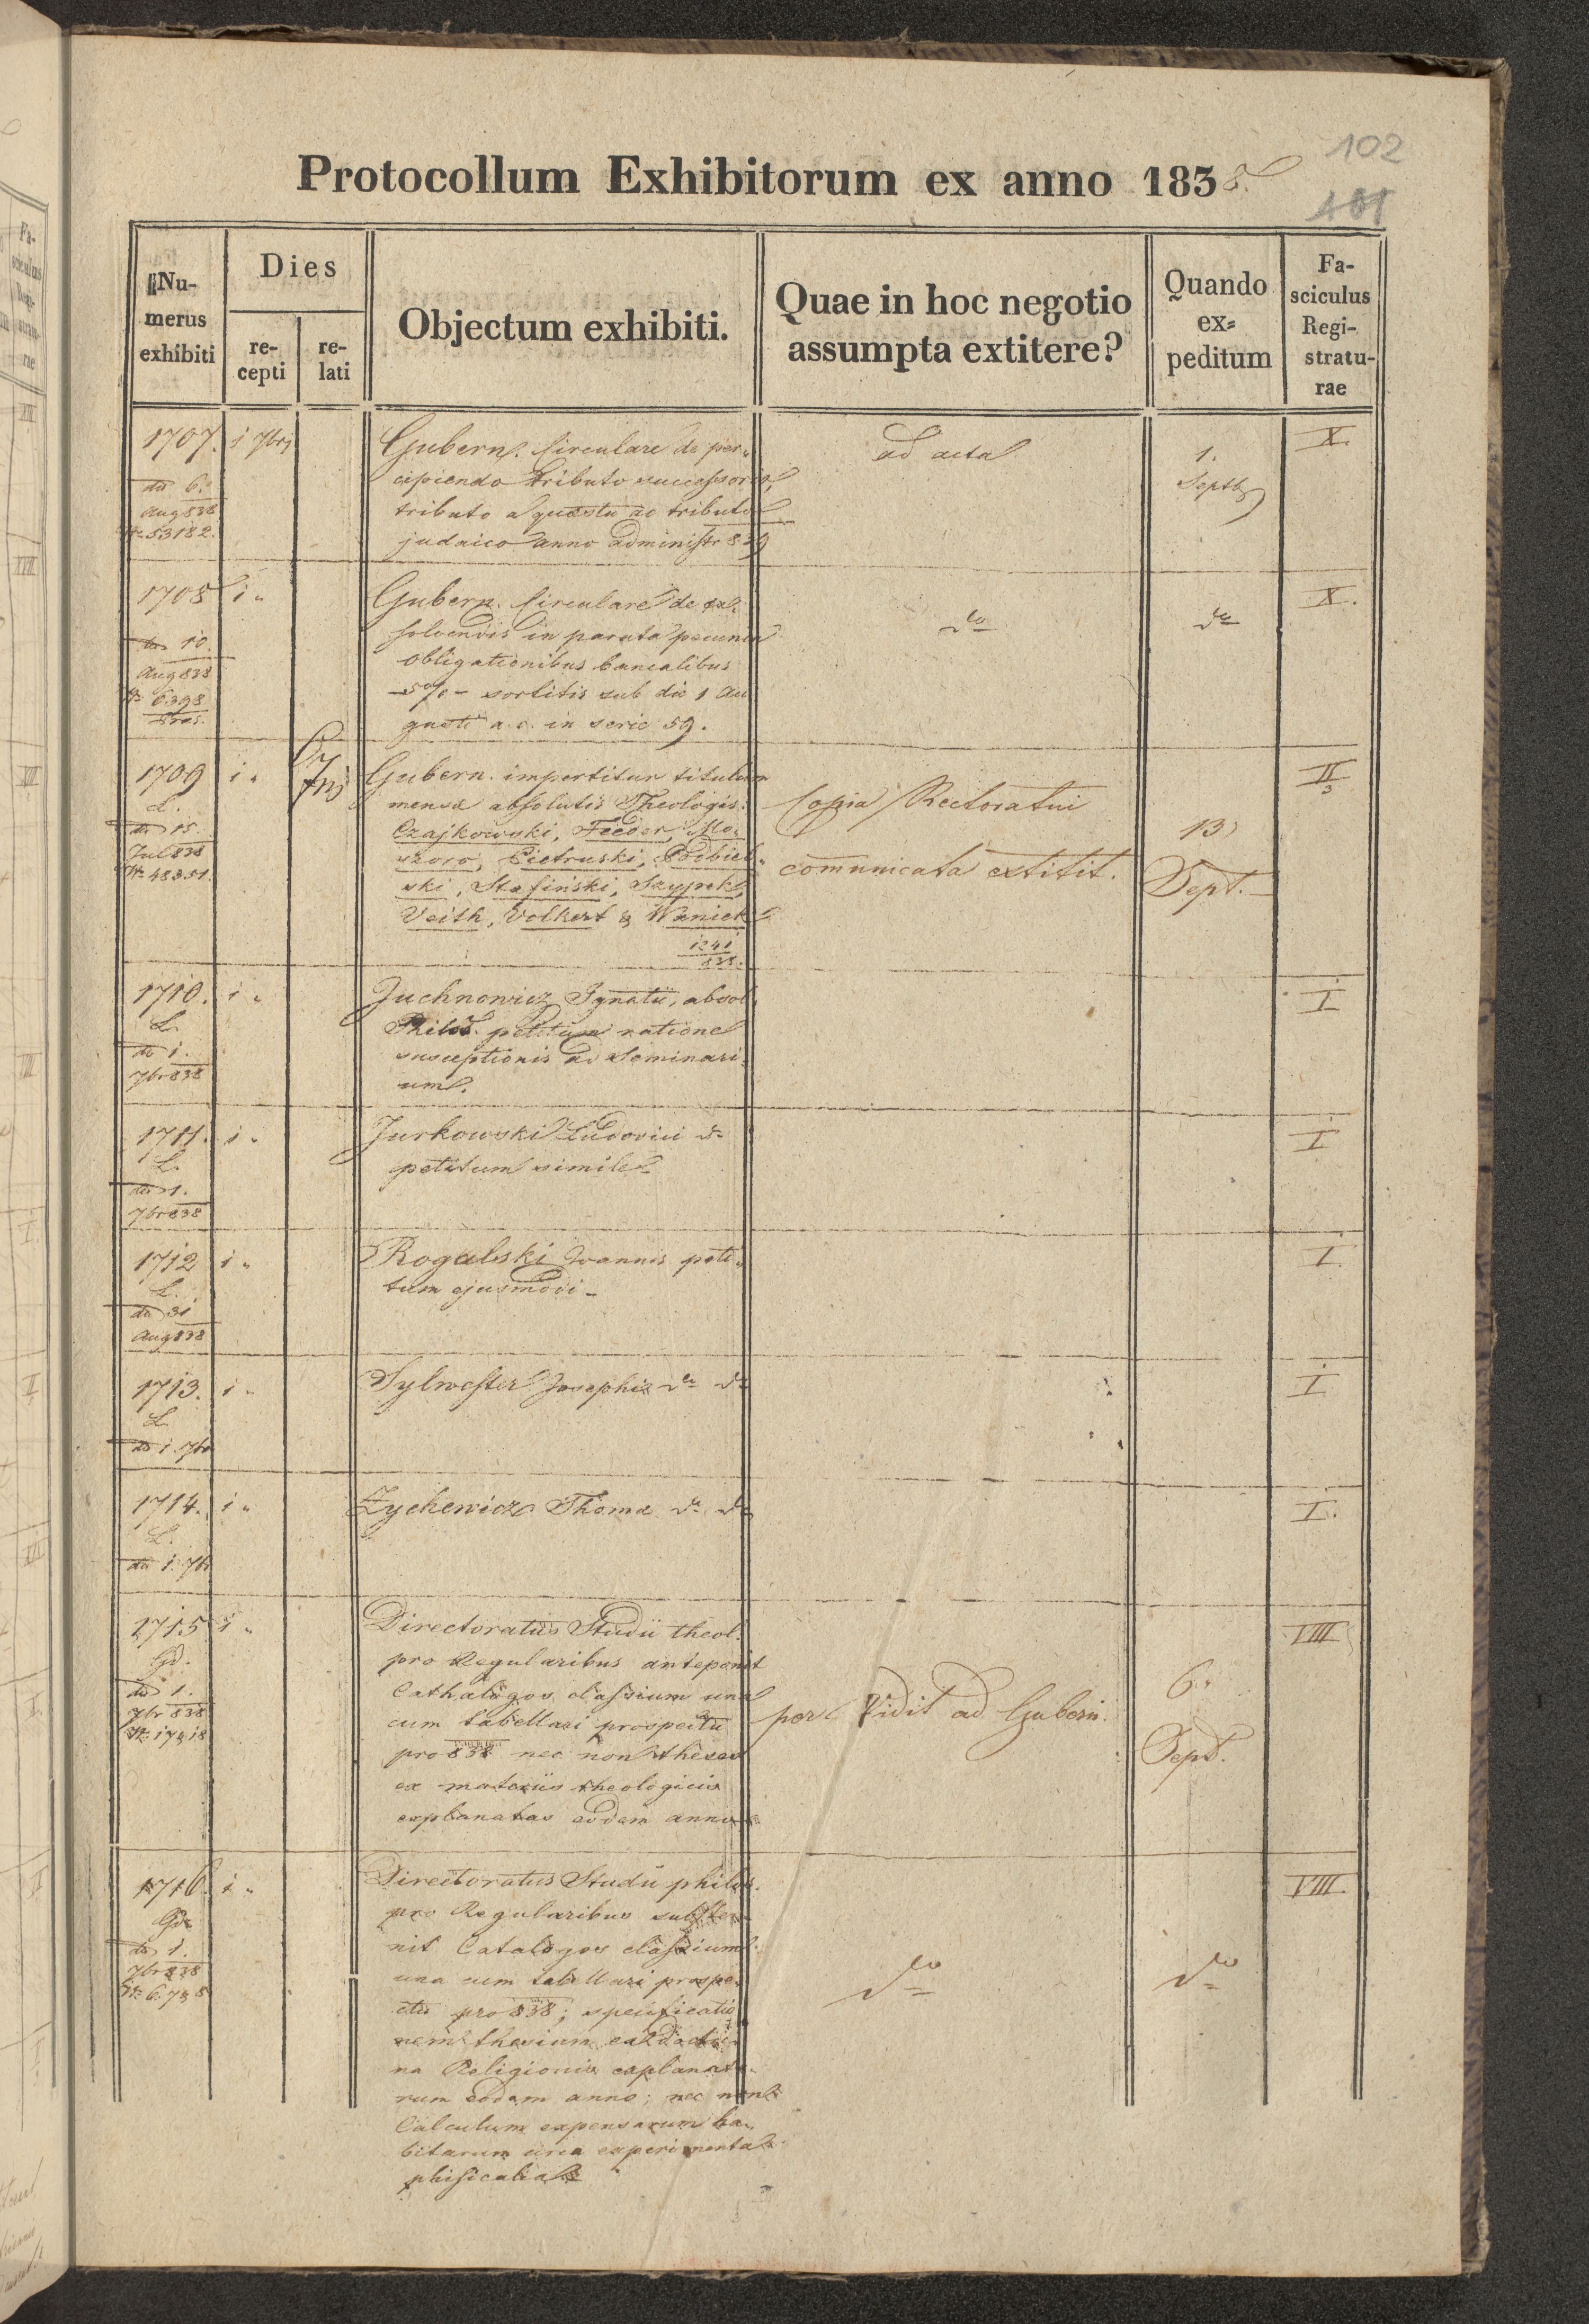 102
101
Protocollum Exhibitorum ex anno 1838.
Numerus exhibiti
Dies
recepti
relati
Objectum exhibiti.
Quae in hoc negotio assumpta extitere?
Quando expeditum
Fasciculus Registraturae
1707. 1 7bri
dto 6.
Aug 838
N: 53182.
Gubern. Circulare de per„
cipiendo tributo successorio,
tributo a quæstu ac tributo
judaico anno administr 839
ad acta
1.
Septb
X.
1708 1 „
dto 10.
Aug 838
N: 6398
Præs.
Gubern. Circulare de ex„
solvendis in parata pecunia
obligationibus bancalibus
5% sortitis sub die 1 Au
gusti a. c. in serie 59.
do
do
X.
1709 1 „
L.
dto 15.
Jul 838
N: 48351.
Gubern. impertitur titulum
mensæ absolutis Theologis.
Czajkowski, Feeder, Mo„
szoro, Pietruski, Podbiel„
ski, Stasiński, Szypek,
Veith, Volkert & Waniek
1241
838.
Copia Rectoratui
communicata extitit.
13
Sept.
II
3
1710. 1 „
L.
dto 1.
7br 838
Juchnowicz Ignatii, absol.
Philos. petitum ratione
susceptionis ad Seminari„
um.
I
1711. 1 „
L.
dto 1.
7br 838
Jurkowski Ludovici do
petitum simile
I
1712 1 „
L.
dto 31
Aug 838
Rogalski Joannis peti„
tum ejusmodi
I.
1713. 1 „
L.
dto 1. 7br
Sylwester Josephi do do
I
1714. 1 „
L.
dto 1. 7br
Zychewicz Thoma do do
I.
1715 1 „
Gd.
dto 1.
7br 838
Directoratus Studii theol.
pro Regularibus anteponit
Cathalogos classium una
cum tabellari prospectu
pro 838 nec non theses
ex materiis theologicis
explanatas eodem anno
per Vidit ad Gubern.
6.
Sept.
VIII
1716. 1 „
Gd
dto 1.
7br 838
Directoratus Studii philos.
pro Regularibus subster„
nit Catalogos classium
una cum tabellari prospe„
ctu pro 838; specificatio
nem thesium ex doctri„
na Religionis explanata„
rum eodem anno; nec non
Calculum expensarum ha„
bitarum circa experimenta
phisicalia
do
do
VIII.